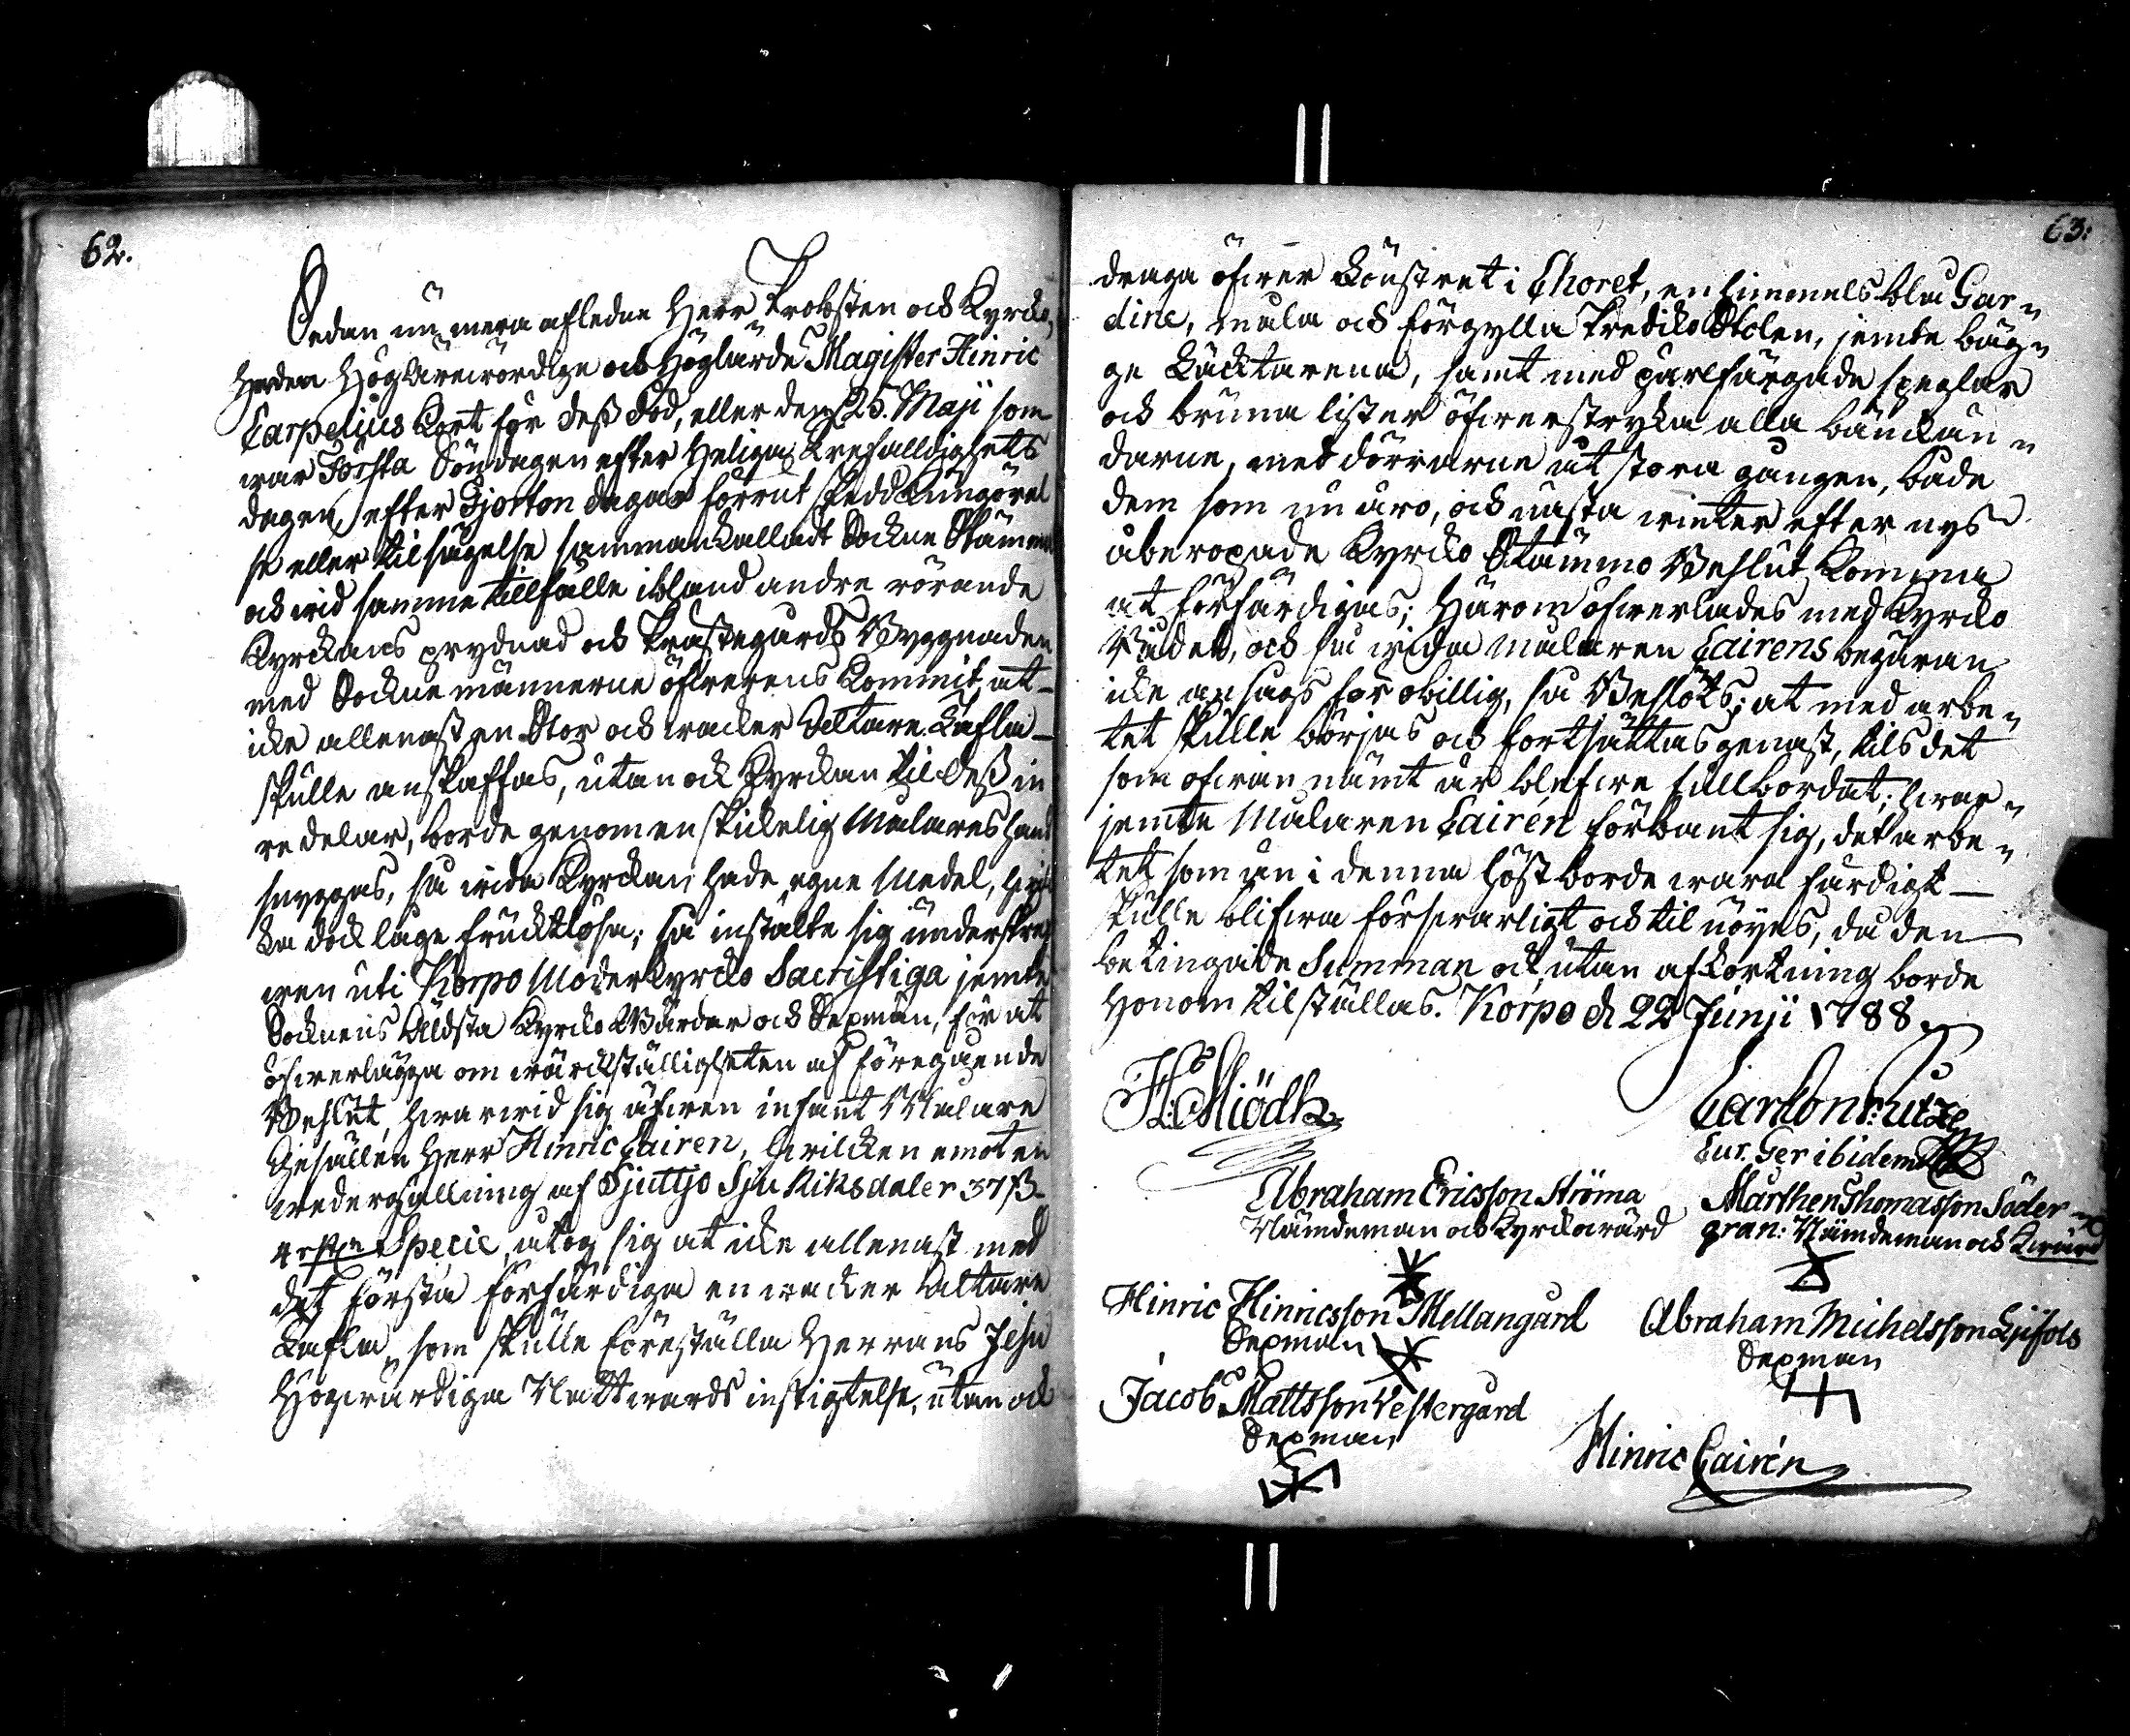 62.
Sedan nu mera afledne Herr Probsten och Kyrko
Herden Höglärewördige och Höglärde Magister Hinric
Carpelius kort för dess död, eller den 25. Maji som
war Första Söndagen efter Heliga Trefalldighets
dagen, efter Fjorton dagar förrut skedd Kungörel
se eller tilsägelse sammankalladt Sockne Stämma
och wid samme tillfälle ibland andre rörande
Kyrckans prydnad och Prästegårds Byggnaden
med Sockne männerne öfwerens kommit, at
icke allenast en Stor och wacker Altare Tafla
skulle anskaffas, utan ock Kyrckan til dess in
re delar, borde genom en skickelig Målares hand
snyggas, så wida Kyrckan hade egne Medel, hwil
ka dock läge fruktlösa; så instälte sig underskref
wen uti Korpo Moderkyrcko Sacristiga jemte
Socknens Äldsta Kyrcko Wärdar och Sexmän, för at
öfwerlägga om wärckställigheten af föregående
Beslut, hwarwid sig äfwen infant Målare
Gesällen Herr Hinric Cairen, hwilcken emot en
wedergällning af Sjuttio Sju Riksdaler 37 ß
4 rst Specie, utog sig at icke allenast med
det första förfärdiga en wacker Altare
Tafla, som skulle föreställa Herrans Jesu
Högwärdiga Nattwards instigtelse, utan ock
63.
draga öfwer Fönstret i Choret, en himmels blå Gar
dine, måla och förgylla PredikoStolen, jemte bäg
ge Läcktarena, samt med pärlfärgade speglar
och bruna lister öfwerstryka alla bänckän
darne, med dörrarne åt stora gången, både
dem som nu äro, och nästa winter efter nys
åberopade Kyrcko Stämmo Beslut komma
at förfärdigas; Härom öfwerlades med Kyrcko
Rådet, och så wida målaren Cairens begäran
icke ansågs för obillig, så Beslöts; at med arbe
tet skulle börjas och fortsättas genast, tils det
som ofwan nämt är blefwe fullbordat; hwar
jemte Målaren Cairén förbant sig, det arbe
tet som än i denna höst borde wara färdigt
skulle blifwa förswarligt och til nöyes, då den
betingade Summan ock utan afkortning borde
Honom tilställas. Korpo d. 22 Junji 1788.
H: Miödh
Carl von Lutze
Cur. Ger ibidem
Abraham Ericsson Ströma
Nämdeman och Kyrckowärd
Mårthen Thomasson Söder
gran: Nämdeman och Kwärd
Hinric Hinricsson Mellangård
Sexman
Abraham Michelsson
Sexman
Jacob Mattsson Vestergård
Sexman
Hinric Cairén